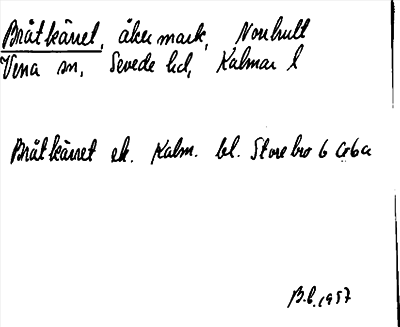 Bråtkärret, åkermark, Norrhult
Vena sn, Sevede hd, Kalmar l
Bråtkärret ek. Kalm. bl. Storebro 6 G 6 a
1957